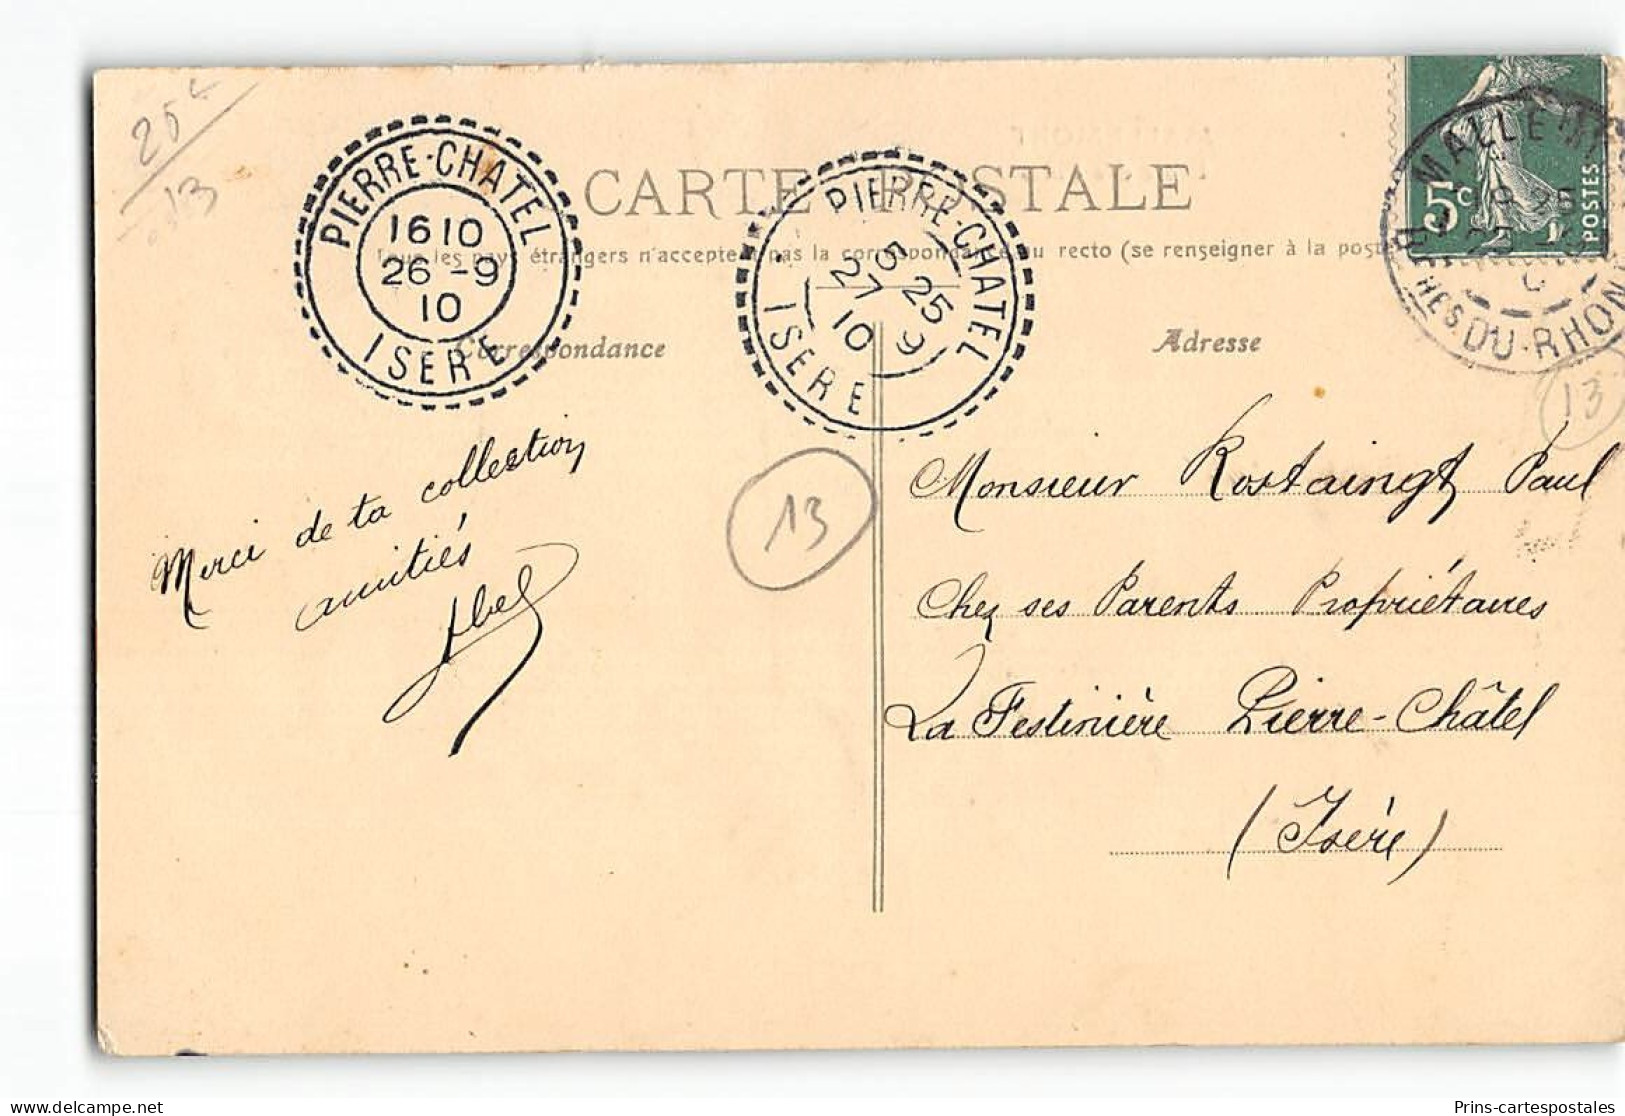 25 c
13
PIERRE-CHATEL
1610
26-9
10
ISERE
CARTE POSTALE
PIERRE-CHATEL
5 25
27 9
10
ISERE
5c
POSTES
MALLEM
BCHES DU-RHON
Tous les pays étrangers n'acceptent pas la correspondance au recto (se renseigner à la poste
Correspondance
Adresse
13
13
Merci de ta collection
amitiés
Abel
Monsieur Rostaingt Paul
Chez ses Parents Propriétaires
La Festinière Pierre-Châtel
(Isère)
Prins-cartespostales